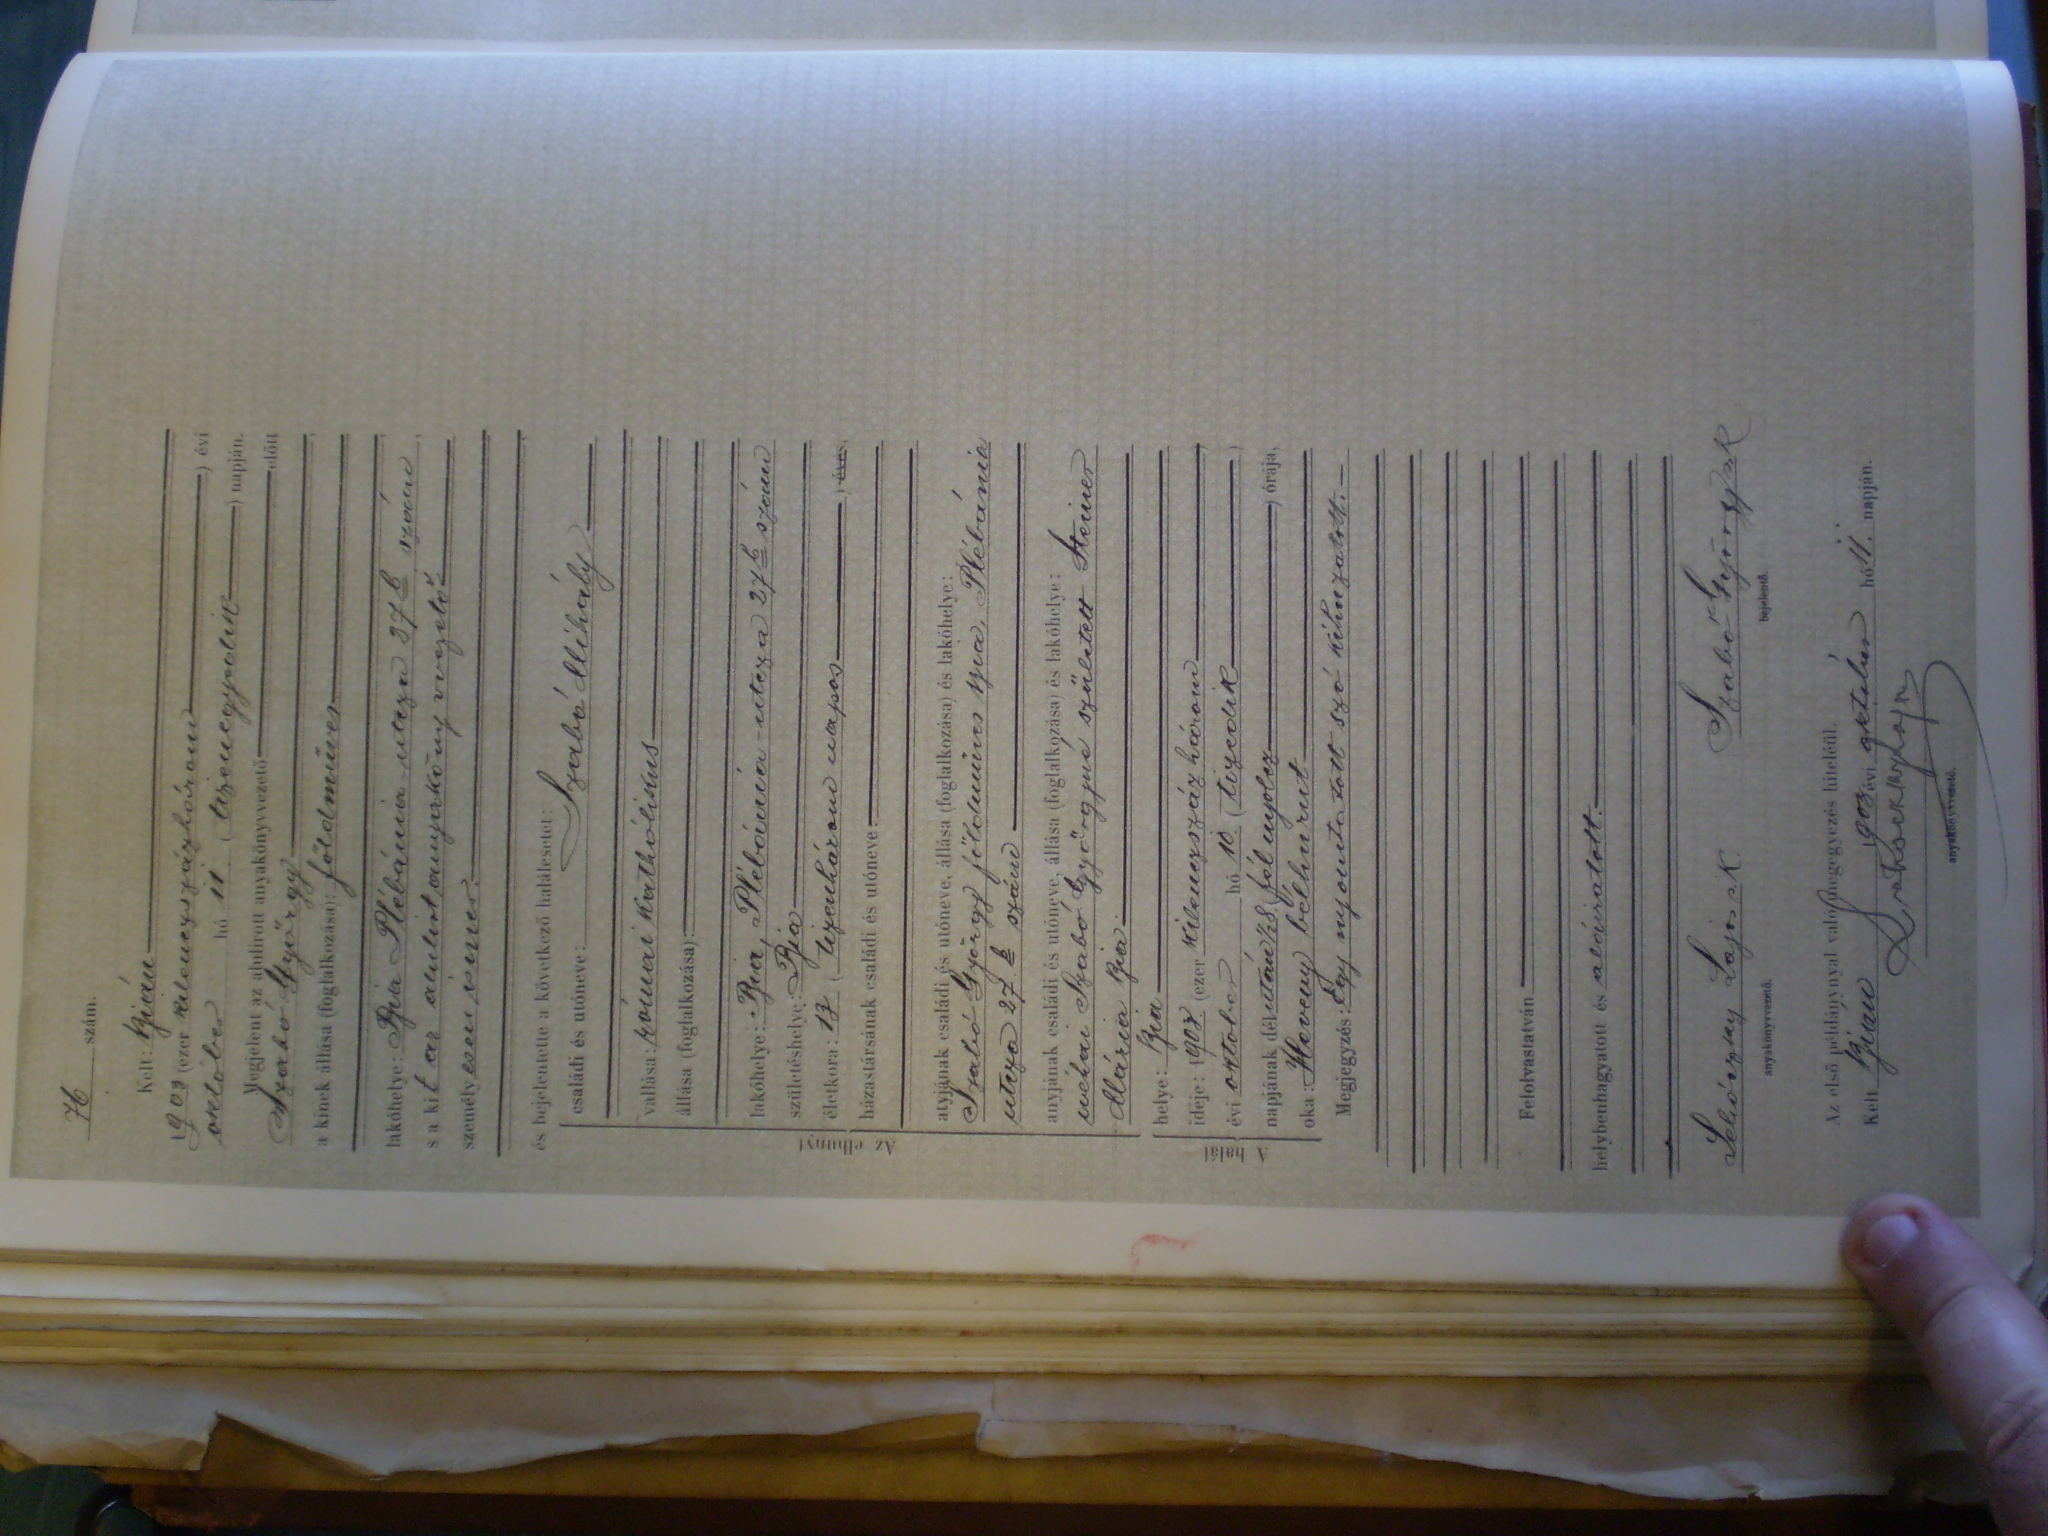 76 szám.
Kelt: Bián
1903 (ezer kilenczszázhárom) évi
október hó 11 (tizenegyedik) napján.
Megjelent az alulirott anyakönyvvezető előtt
Szabó György
a kinek állása (foglalkozása): földműves
lakóhelye: Bia Plébánia-utcza 27 b szám
s a kit az alulirt anyakönyvvezető
személyesen ismer.
és bejelentette a következő halálesetet:
Az elhunyt
családi és utóneve: Szabó Mihály
vallása: római katholikus
állása (foglalkozása):
lakóhelye: Bia, Plébánia-utcza 27 b szám
születéshelye: Bia
életkora: 13 (tizenhárom napos) éves,
házastársának családi és utóneve:
atyjának családi és utóneve, állása (foglalkozása) és lakóhelye:
Szabó György földműves Bia, Plébánia
utcza 27 b szám
anyjának családi és utóneve, állása (foglalkozása) és lakóhelye:
néhai Szabó Györgyné született Steiner
Mária Bia.
A halál
helye: Bia
ideje: 1903 (ezer kilenczszázhárom
évi október hó 10 (tizedik)
napjának délután ½8 (fél nyolcz) órája,
oka: Heveny bélhurut
Megjegyzés: Egy nyomtatott szó kihuzatott.—
Felolvastatván
helybenhagyatott és aláiratott.
Szabó György sk
anyakönyvvezető.
bejelentő.
Az első példánynyal való megegyezés hiteléül.
Kelt Bián 1903 évi október hó 11. napján.
anyakönyvvezető.